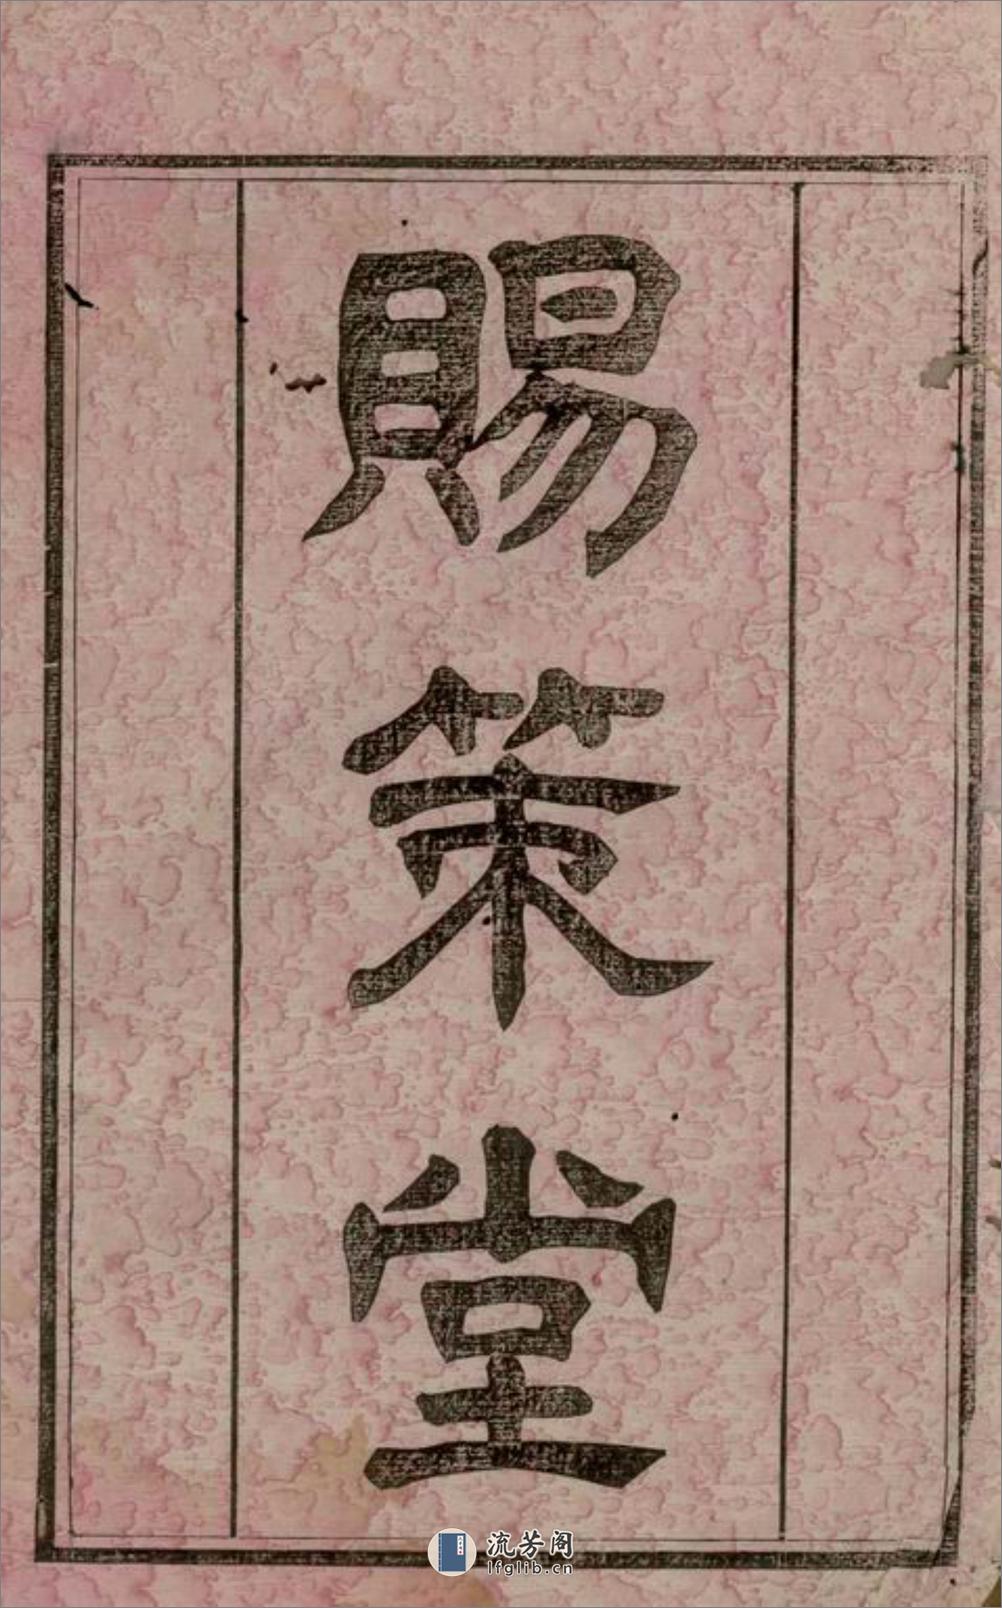 賜策堂
流芳阁
lfglib.cn